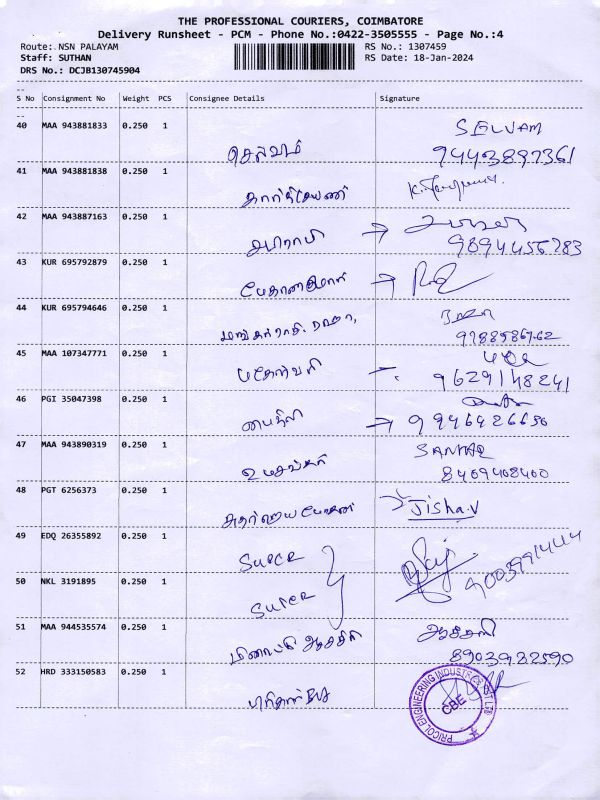 THE PROFESSIONAL COURIERS, COIMBATORE
Delivery Runsheet - PCM - Phone No.:0422-3505555 - Page No.:4
Route: NSN PALAYAM RS No.: 1307459
Staff: SUTHAN RS Date: 18-Jan-2024
DRS No.: DCJB130745904
S No Consignment No Weight PCS Consignee Details Signature
40 MAA 943881833 0.250 1 செல்வம் SELVAM
9443897361
41 MAA 943881838 0.250 1 கார்த்திகேயன்
42 MAA 943887163 0.250 1 அபிராமி →
9894456783
43 KUR 695792879 0.250 1 →
44 KUR 695794646 0.250 1
45 MAA 107347771 0.250 1
9629148241
46 PGI 35047398 0.250 1 மைதிலி →
9946426650
47 MAA 943890319 0.250 1 உமாசங்கர் SANKAR
8409408400
48 PGT 6256373 0.250 1 Jisha.V
49 EDQ 26355892 0.250 1 SUPER
9003991444
50 NKL 3191895 0.250 1 SUPER
51 MAA 944535574 0.250 1 மீனாட்சி
8903982590
52 HRD 333150583 0.250 1
PRICOL ENGINEERING INDUSTRIES PVT LTD
CBE